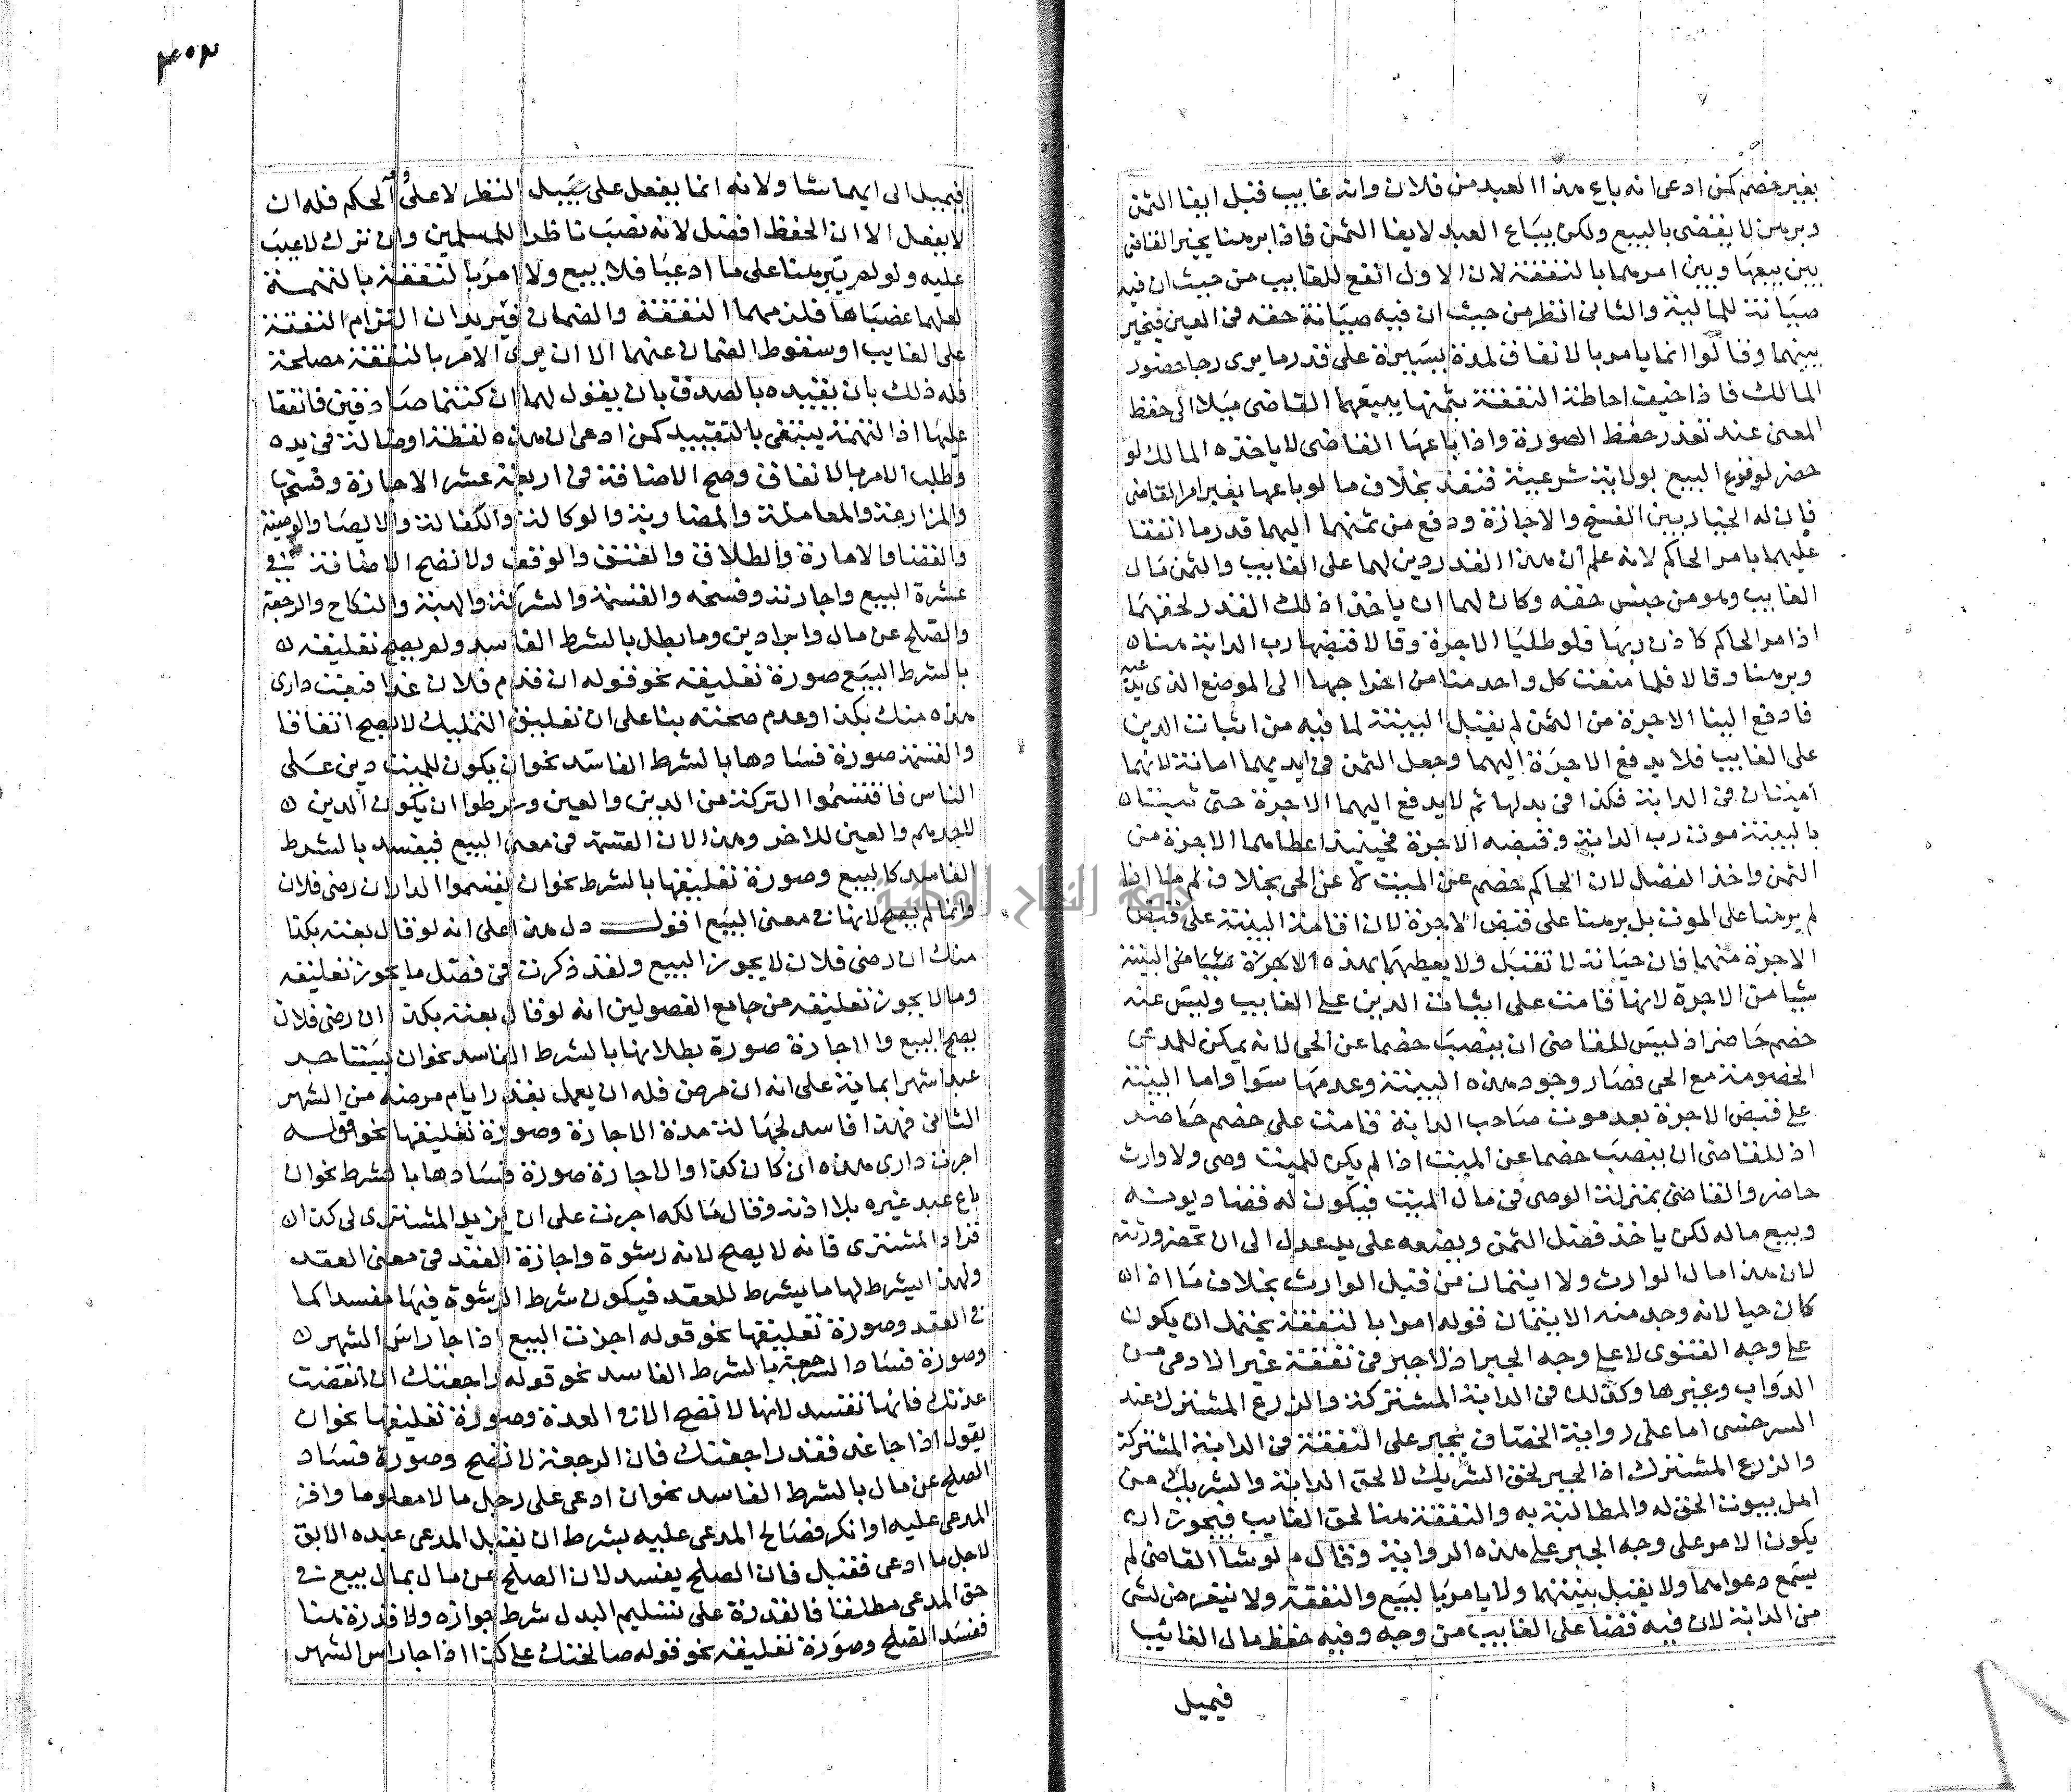 بغير خصم كمن ادعى انه باع هذا العبد من فلان وانه غايب قبل ايفا الثمن
وبرهن لا يقضى بالبيع ولكن يباع العبد لايفا الثمن فاذا برهنا يخير القاضى
بين بيعها وبين امرهما بالنفقة لان الاول انفع للغايب من حيث ان فيه
صيانة للمالية والثانى انظر من حيث ان فيه صيانة حقه فى العين فيخير
بينهما وقالوا انما يامر بالانفاق لمدة يسيرة على قدر ما يرى رجا حضور
المالك فاذا خيف احاطة النفقة بثمنها يبيعهما القاضى ميلا الى حفظ
المعنى عند تعذر حفظ الصورة واذا باعها القاضى لا ياخذه المالك لو
حضر لوقوع البيع بولاية شرعية فنفذ بخلاف ما لو باعها بغير امر القاضى
فان له الخيار بين الفسخ والاجازة ودفع من ثمنهما اليهما قدر ما انفقا
عليهما بامر الحاكم لانه علم أن هذا القدر دين لهما على الغايب والثمن مال
الغايب وهو من جنس حقه وكان لهما ان ياخذا ذلك القدر لحقهما
اذ امر الحاكم كاذن ربها فلو طلبا الاجرة وقالا قبضها رب الدابة منا
وبرهنا وقالا فلما منعت كل واحد منا من اخراجها الى الموضع الذى يد عيه
فادفع الينا الاجرة من الثمن لم يقبل البينة لما فيه من اثبات الدين
على الغايب فلا يدفع الاجرة اليهما وجعل الثمن فى ايديهما امانة لانهما
أمينان فى الدابة فكذا فى بدلها ثم لا يدفع اليهما الاجرة حتى يثبتا
بالبينة موت رب الدابة وقبضه الاجرة فحينئذ اعطاهما الاجرة من
الثمن واخذ الفضل لان الحاكم خصم عن الميت لا عن الحى بخلاف ما اذا
لم يبرهنا على الموت بل برهنا على قبض الاجرة لان اقامة البينة على قبض
الاجرة منهما فان حيانه لا تقبل ولا يعطيهما بهذه الاجرة شيا من البينة
شيا من الاجرة لانها قامت على اثبات الدين على الغايب وليس عنه
خصم حاضر اذ ليس للقاضى ان ينصب خصما عن الحى لانه يمكن للمدعى
الخصومة مع الحى فصار وجود هذه البينة وعدمها سوا واما البينة
على قبض الاجرة بعد موت صاحب الدابة قامت على خصم حاضر
اذ للقاضى ان ينصب خصما عن الميت اذا لم يكن للميت وصى ولا وارث
حاضر والقاضى بمنزلة الوصى فى مال الميت فيكون له قضا ديونه
وبيع ماله لكن ياخذ فضل الثمن ويضعه على يد عدل الى ان تحضر ورثته
لان هذا مال الوارث ولا ايتمان من قبل الوارث بخلاف ما اذا
كان حيا لانه وجد منه الايتمان قوله امرا بالنفقة يحتمل ان يكون
على وجه الفتوى لا على وجه الجبر اذ لا جبر فى نفقة غير الادمى من
الدواب وغيرها وكذلك فى الدابة المشتركة والزرع المشترك عند
السرخسى اما على رواية الخصاف يجبر على النفقة فى الدابة المشتركة
والزرع المشترك اذ الجبر لحق الشريك لا لحق الدابة والشريك من
اهل بيوت الحق له والمطالبة به والنفقة هنا لحق الغايب فيجوز ان
يكون الامر على وجه الجبر على هذه الرواية وقال م لو شا القاضى لم
يسمع دعواهما ولا يقبل بينتهما ولا يامر بالبيع والنفقة ولا يتعرض لشى
من الدابة لان فيه قضا على الغايب من وجه وفيه حفظ مال الغايب
فيميل
٣٠٣
فيميل الى ايهما شا ولانه انما يفعل على سبيل النظر لا على وجه الحكم فله ان
لا يفعل الا ان الحفظ افضل لانه نصب ناظرا للمسلمين وان ترك لا عيب
عليه ولو لم يبرهنا على ما ادعيا فلا بيع ولا امر بالنفقة بالتهمة
لعلهما غصباها فلزمهما النفقة والضمان فيريدان التزام النفقة
على الغايب او سقوط الضمان عنهما الا ان يرى الامر بالنفقة مصلحة
فله ذلك بان يقيده بالصدق بان يقول لهما ان كنتما صادقين فانفقا
عليها اذ التهمة ينتفى بالتقييد كمن ادعى ان هذه لقطة او ضالة فى يده
وطلب الامر بالانفاق وصح الاضافة فى اربعة عشر الاجازة وفسخها
والمزارعة والمعاملة والمضاربة والوكالة والكفالة والايصا والوصية
والقضا والامارة والطلاق والعتق والوقف ولا تصح الاضافة فى
عشرة البيع واجازته وفسخه والقسمة والشركة والهبة والنكاح والرجعة
والصلح عن مال وابرا دين وما يبطل بالشرط الفاسد ولم يصح تعليقه
بالشرط البيع صورة تعليقه نحو قوله ان قدم فلان غدا فبعت دارى
هذه منك بكذا وعدم صحته بنا على ان تعليق التمليك لا يصح اتفاقا
والقسمة صورة فسادها بالشرط الفاسد نحو ان يكون للميت دين على
الناس فاقتسموا التركة من الدين والعين وشرطوا ان يكون الدين
لاحدهم والعين للاخر وهذا لان القسمة فى معنى البيع فيفسد بالشرط
الفاسد كالبيع وصورة تعليقها بالشرط نحو ان يقسموا الدار ان رضى فلان
وانما لم يصح لانها فى معنى البيع اقول دل هذا على انه لو قال بعته بكذا
منك ان رضى فلان لا يجوز البيع ولقد ذكرت فى فصل ما يجوز تعليقه
وما لا يجوز تعليقه من جامع الفصولين انه لو قال بعته بكذا ان رضى فلان
يصح البيع والاجازة صورة بطلانها بالشرط الفاسد نحو ان يستاجر
عبدا شهرا بماية على انه ان مرض فله ان يعمل بقدر ايام مرضه من الشهر
الثانى فهذا فاسد لجهالة مدة الاجارة وصورة تعليقها نحو قوله
اجرت دارى هذه ان كان كذا والاجازة صورة فسادها بالشرط نحو ان
باع عبد غيره بلا اذنه وقال مالكه اجزت على ان يزيد المشترى لى كذا
فزاد المشترى فانه لا يصح لانه رشوة واجازة العقد فى معنى العقد
ولهذا يشرط لها ما يشرط للعقد فيكون شرط الرشوة فيها مفسدا كما
فى العقد وصورة تعليقها نحو قوله اجزت البيع اذا جا راس الشهر
وصورة فساد الرجعة بالشرط الفاسد نحو قوله راجعتك ان انقضت
عدتك فانها تفسد لانها لا تصح الا فى العدة وصورة تعليقها نحو ان
يقول اذا جا غد فقد راجعتك فان الرجعة لا تصح وصورة فساد
الصلح عن مال بالشرط الفاسد نحو ان ادعى على رجل مالا معلوما واقر
المدعى عليه او انكر فصالح المدعى عليه بشرط ان يقبل المدعى عبده الابق
لاجل ما ادعى فقبل فان الصلح يفسد لان الصلح عن مال بمال بيع فى
حق المدعى مطلقا فالقدرة على تسليم البدل شرط جوازه ولا قدرة هنا
ففسد الصلح وصورة تعليقه نحو قوله صالحتك على كذا اذا جا راس الشهر
جامعة النجاح الوطنية